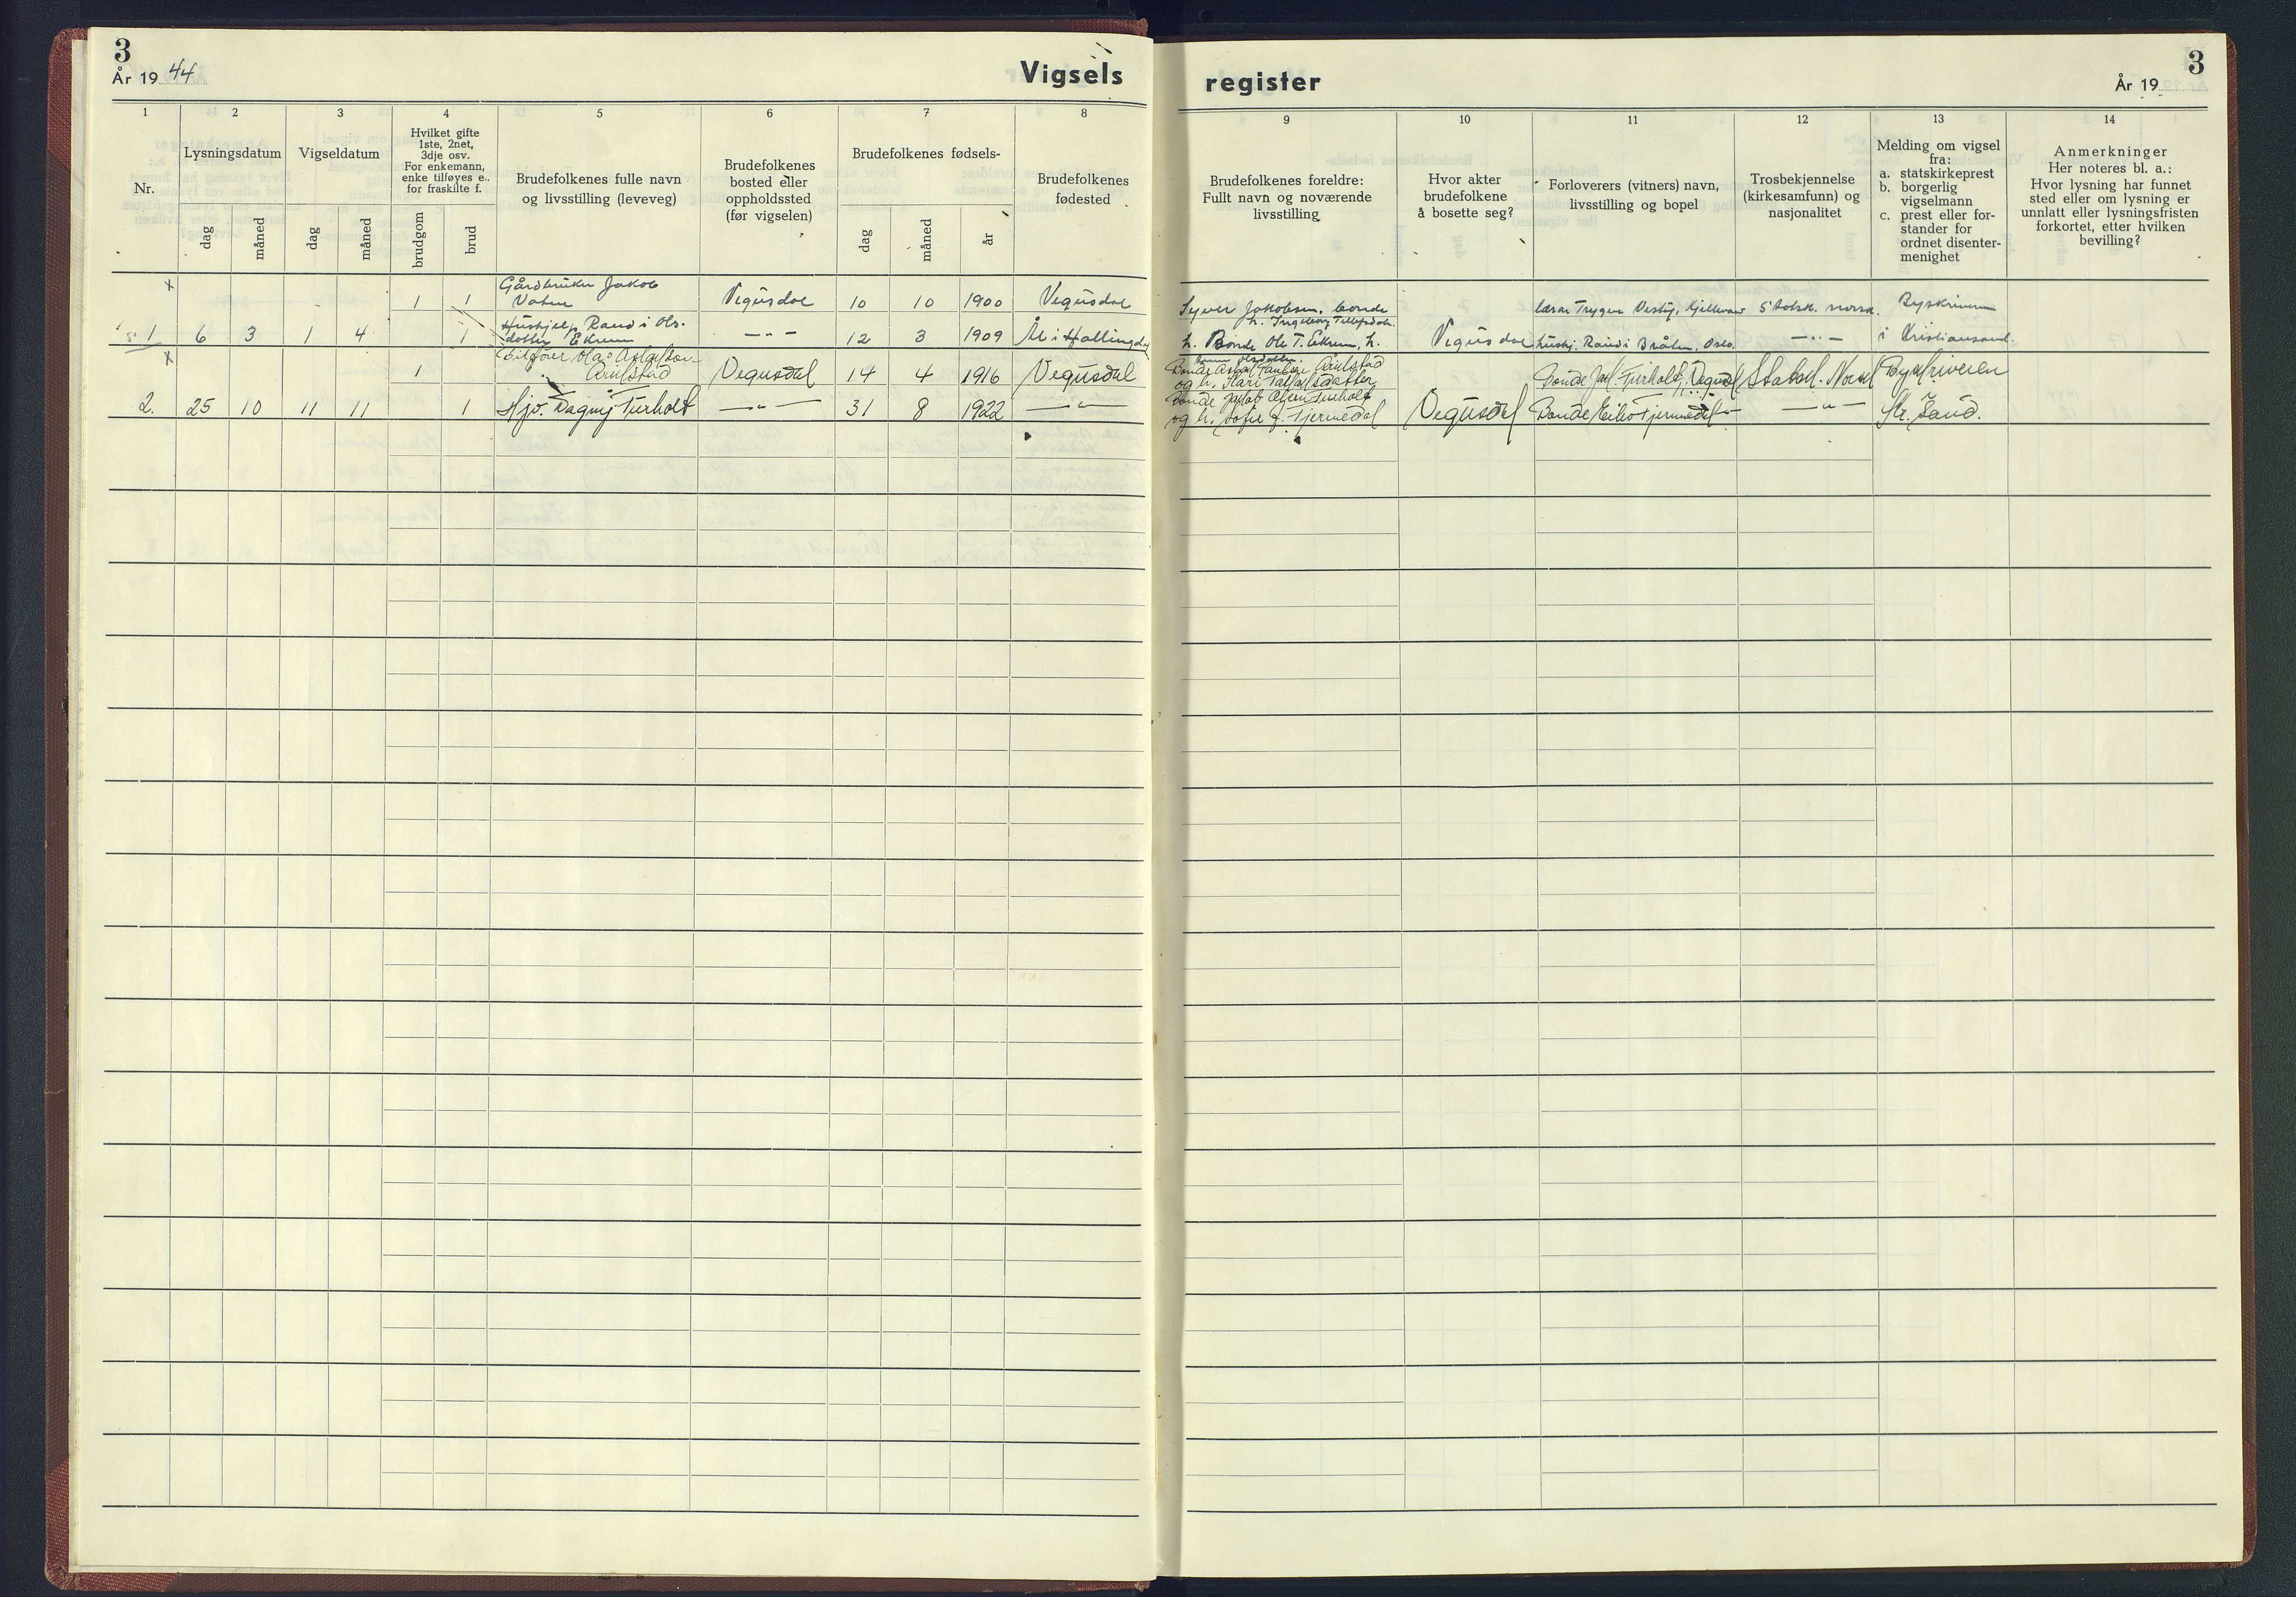 3
År 19 44
Vigsels
register
3
År 19
1
2
3
4
5
6
7
8
9
10
11
12
13
14
Nr.
Lysningsdatum
dag
måned
Vigseldatum
dag
måned
Hvilket gifte
1ste, 2net,
3dje osv.
For enkemann,
enke tilføyes e..
for fraskilte f.
brudgom
brud
Brudefolkenes fulle navn
og livsstilling (leveveg)
Brudefolkenes
bosted eller
oppholdssted
(før vigselen)
Brudefolkenes fødsels-
dag
måned
år
Brudefolkenes
fødested
Brudefolkenes foreldre:
Fullt navn og noværende
livsstilling
Hvor akter
brudefolkene
å bosette seg?
Forloverers (vitners) navn,
livsstilling og bopel
Trosbekjennelse
(kirkesamfunn) og
nasjonalitet
Melding om vigsel
fra:
a. statskirkeprest
b. borgerlig
vigselmann
c. prest eller for-
stander for
ordnet disenter-
menighet
Anmerkninger
Her noteres bl. a.:
Hvor lysning har funnet
sted eller om lysning er
unnlatt eller lysningsfristen
forkortet, etter hvilken
bevilling?
x
1 1
Gårdbruker Jakob
Vatne
Vegusdal
10 10 1900
Vegusdal
Syver Jakobsen, bonde
h. Ingeborg Tellefsdtr.
lærar Trygve
Statsk. norsk.
Byskriveren
1 6 3 1 4
1
Hushjelp Randi Ols-
dotter Ekrem
— " —
12 3 1909
Ål i Hallingdal
h. Bonde Ole T. Ekrem, h.
Vegusdal
hushj. Randi Bråten, Oslo.
— " —
i Kristiansand.
x
1
Bilfører Olav Aslaksson
Vegusdal
14 4 1916
Vegusdal
Bonde
og h. Kari
Bonde
Vegusdal
Statsk. Norsk
Byskriveren
2. 25 10 11 11
1
Hjv. Dagny Turholt
— " —
31 8 1922
— " —
Bonde
og h. Sofie f. Tjermedal
Vegusdal
Bonde
— " —
Kr. Sand.